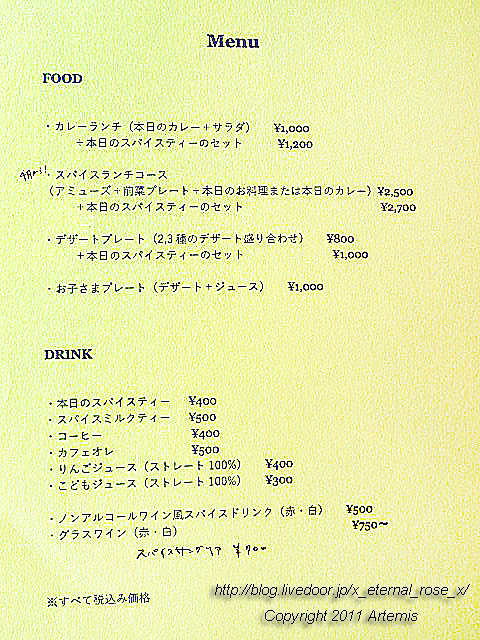 Menu
FOOD
・カレーランチ（本日のカレー＋サラダ） ¥1,000
＋本日のスパイスティーのセット ¥1,200
・スパイスランチコース
（アミューズ＋前菜プレート＋本日のお料理または本日のカレー）¥2,500
＋本日のスパイスティーのセット ¥2,700
・デザートプレート（2,3種のデザート盛り合わせ） ¥800
＋本日のスパイスティーのセット ¥1,000
・お子さまプレート（デザート＋ジュース） ¥1,000
DRINK
・本日のスパイスティー ¥400
・スパイスミルクティー ¥500
・コーヒー ¥400
・カフェオレ ¥500
・りんごジュース（ストレート100%） ¥400
・こどもジュース（ストレート100%） ¥300
・ノンアルコールワイン風スパイスドリンク（赤・白） ¥500
・グラスワイン（赤・白） ¥750～
スパイスサングリア ¥700
※すべて税込み価格
http://blog.livedoor.jp/x_eternal_rose_x/
Copyright 2011 Artemis